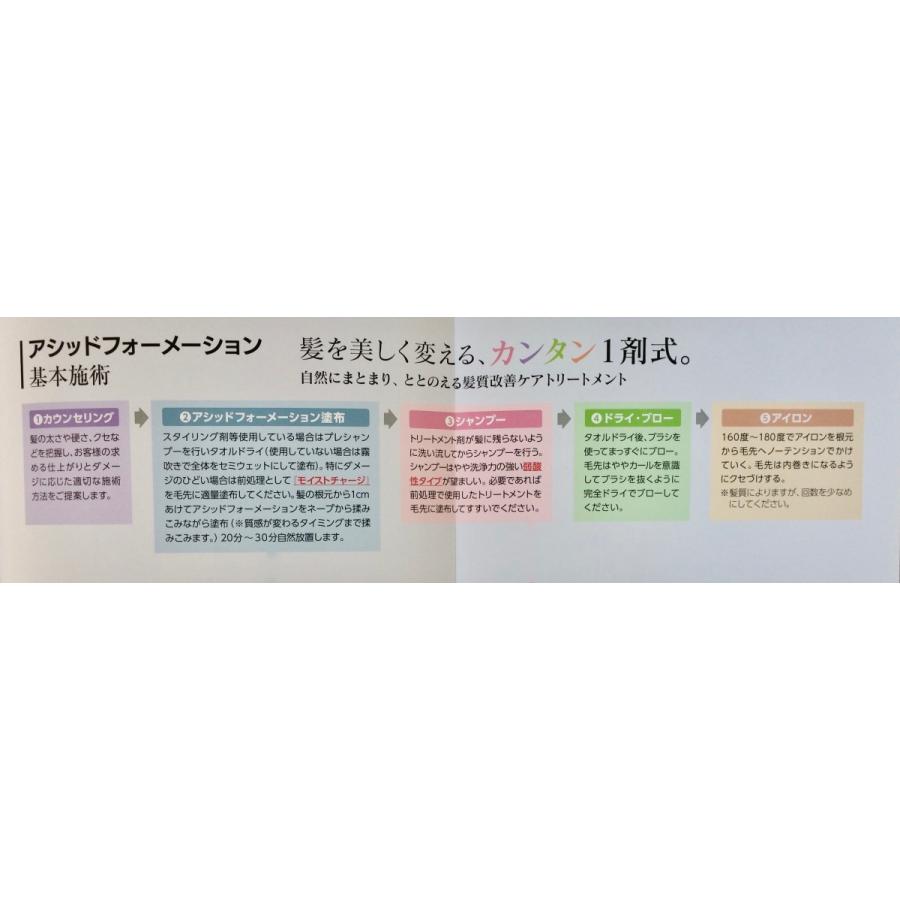 アシッドフォーメーション
基本施術
髪を美しく変える、カンタン1剤式。
自然にまとまり、ととのえる髪質改善ケアトリートメント
❶カウンセリング
髪の太さや硬さ、クセな
どを把握し、お客様の求
める仕上がりとダメー
ジに応じた適切な施術
方法をご提案します。
❷アシッドフォーメーション塗布
スタイリング剤等使用している場合はプレシャン
プーを行いタオルドライ(使用していない場合は霧
吹きで全体をセミウェットにして塗布)。特にダメー
ジのひどい場合は前処理として『モイストチャージ』
を毛先に適量塗布してください。髪の根元から1cm
あけてアシッドフォーメーションをネープから揉み
こみながら塗布(※質感が変わるタイミングまで揉
みこみます。)20分〜30分自然放置します。
❸シャンプー
トリートメント剤が髪に残らないよう
に洗い流してからシャンプーを行う。
シャンプーはやや洗浄力の強い弱酸
性タイプが望ましい。必要であれば
前処理で使用したトリートメントを
毛先に塗布してすすいでください。
❹ドライ・ブロー
タオルドライ後、ブラシを
使ってまっすぐにブロー。
毛先はややカールを意識
してブラシを抜くように
完全ドライでブローして
ください。
❺アイロン
160度〜180度でアイロンを根元
から毛先へノーテンションでかけ
ていく。毛先は内巻きになるよう
にクセづけする。
※髪質によりますが、回数を少なめ
にしてください。